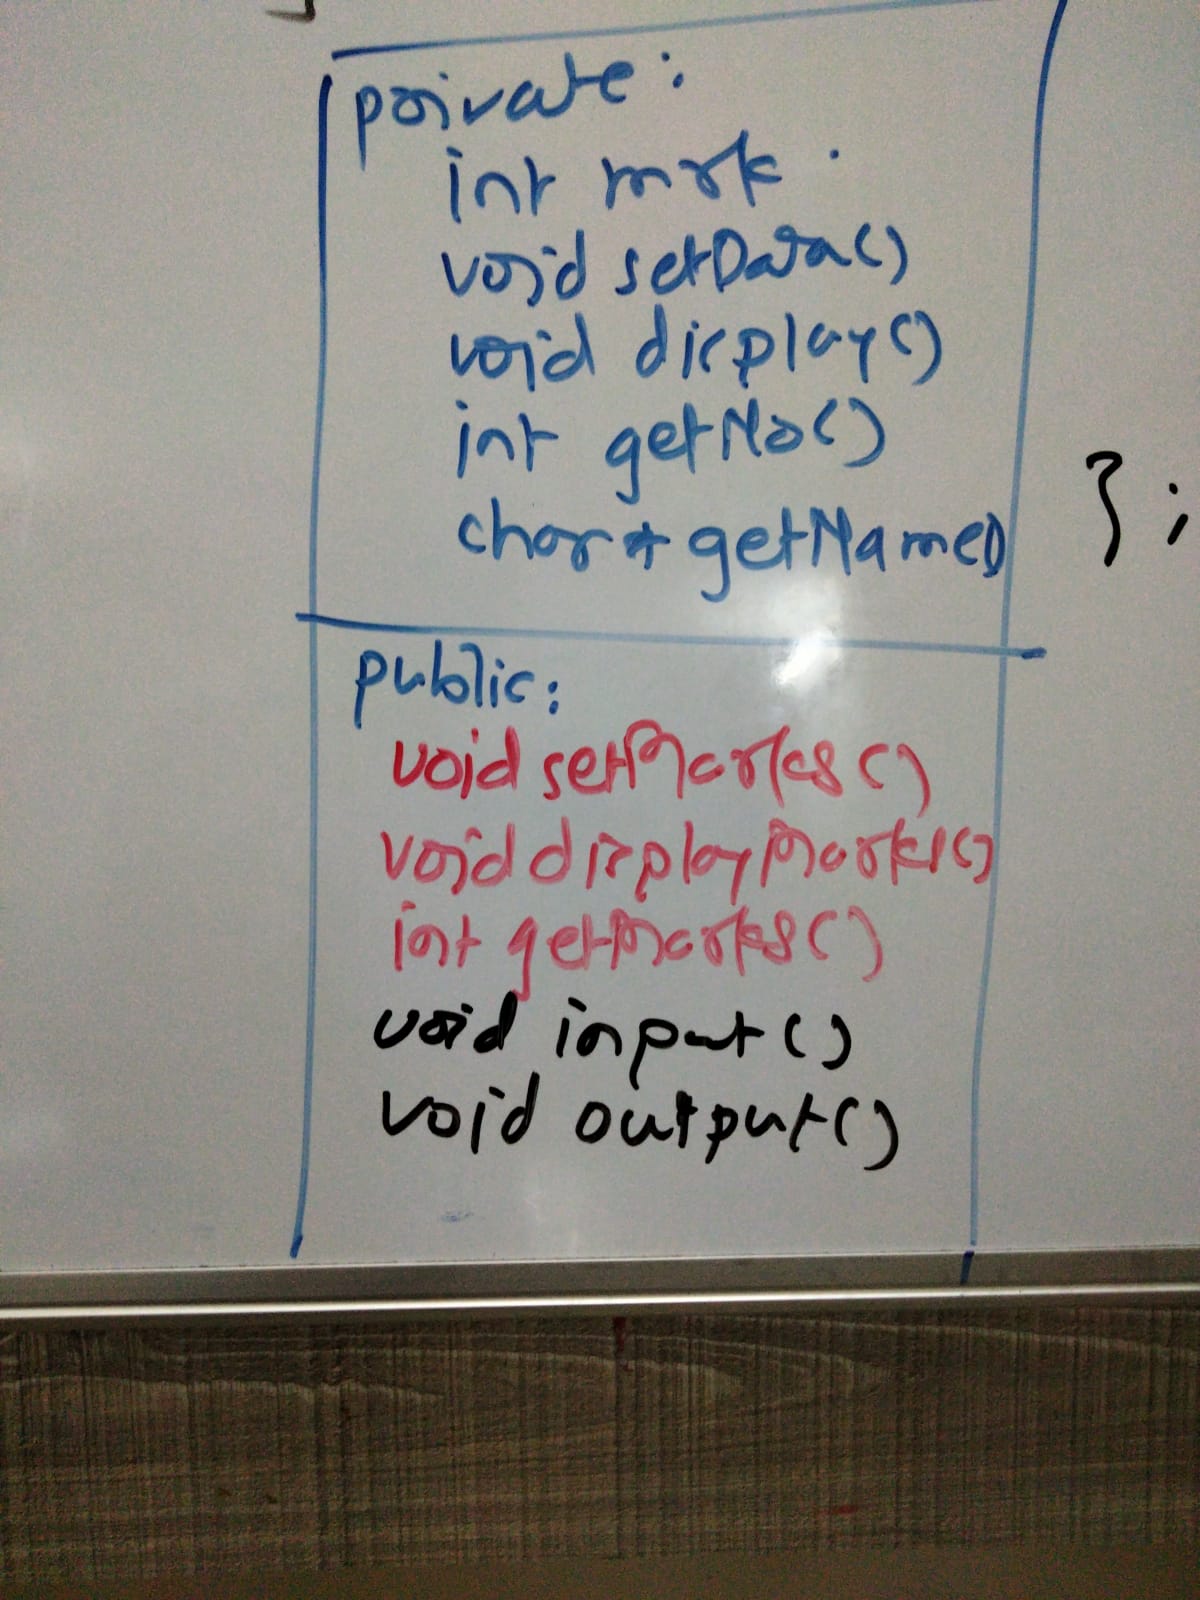 private:
int mrk
void setData()
void display()
int getNo()
char* getName()
};
public:
void setMarks()
void displayMarks()
int getMarks()
void input()
void output()